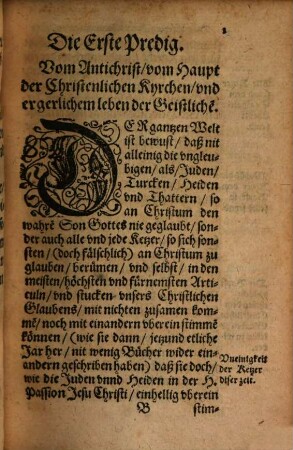 Die Erste Predig.
Vom Antichrist/vom Haupt
der Christenlichen Kyrchen/vnd
ergerlichem leben der Geistlichē.
DER gantzen Welt
ist bewust/ daß nit
alleinig die vngleu-
bigen/als/Juden/
Turcken/ Heiden
vnd Thattern / so
an Christum den
wahrē Son Gottes nie geglaubt/son-
der auch alle vnd jede Ketzer/so sich son-
sten/ (doch fälschlich) an Christum zu
glauben/berümen/ vnd selbst/ in den
meisten/höchsten vnd fürnemsten Arti-
culn/vnd stucken vnsers Christlichen
Glaubens/ mit nichten zusamen kom-
mē/noch mit einandern vberein stimmē
können / (wie sie dann / jetzund etliche
Jar her/ nit wenig Bücher wider ein-
andern geschriben haben) daß sie doch/
wie die Juden vnnd Heiden in der H.
Passion Jesu Christi/ einhellig vberein
Vneinigkeit
der Ketzer
diser zeit.
B
stim-